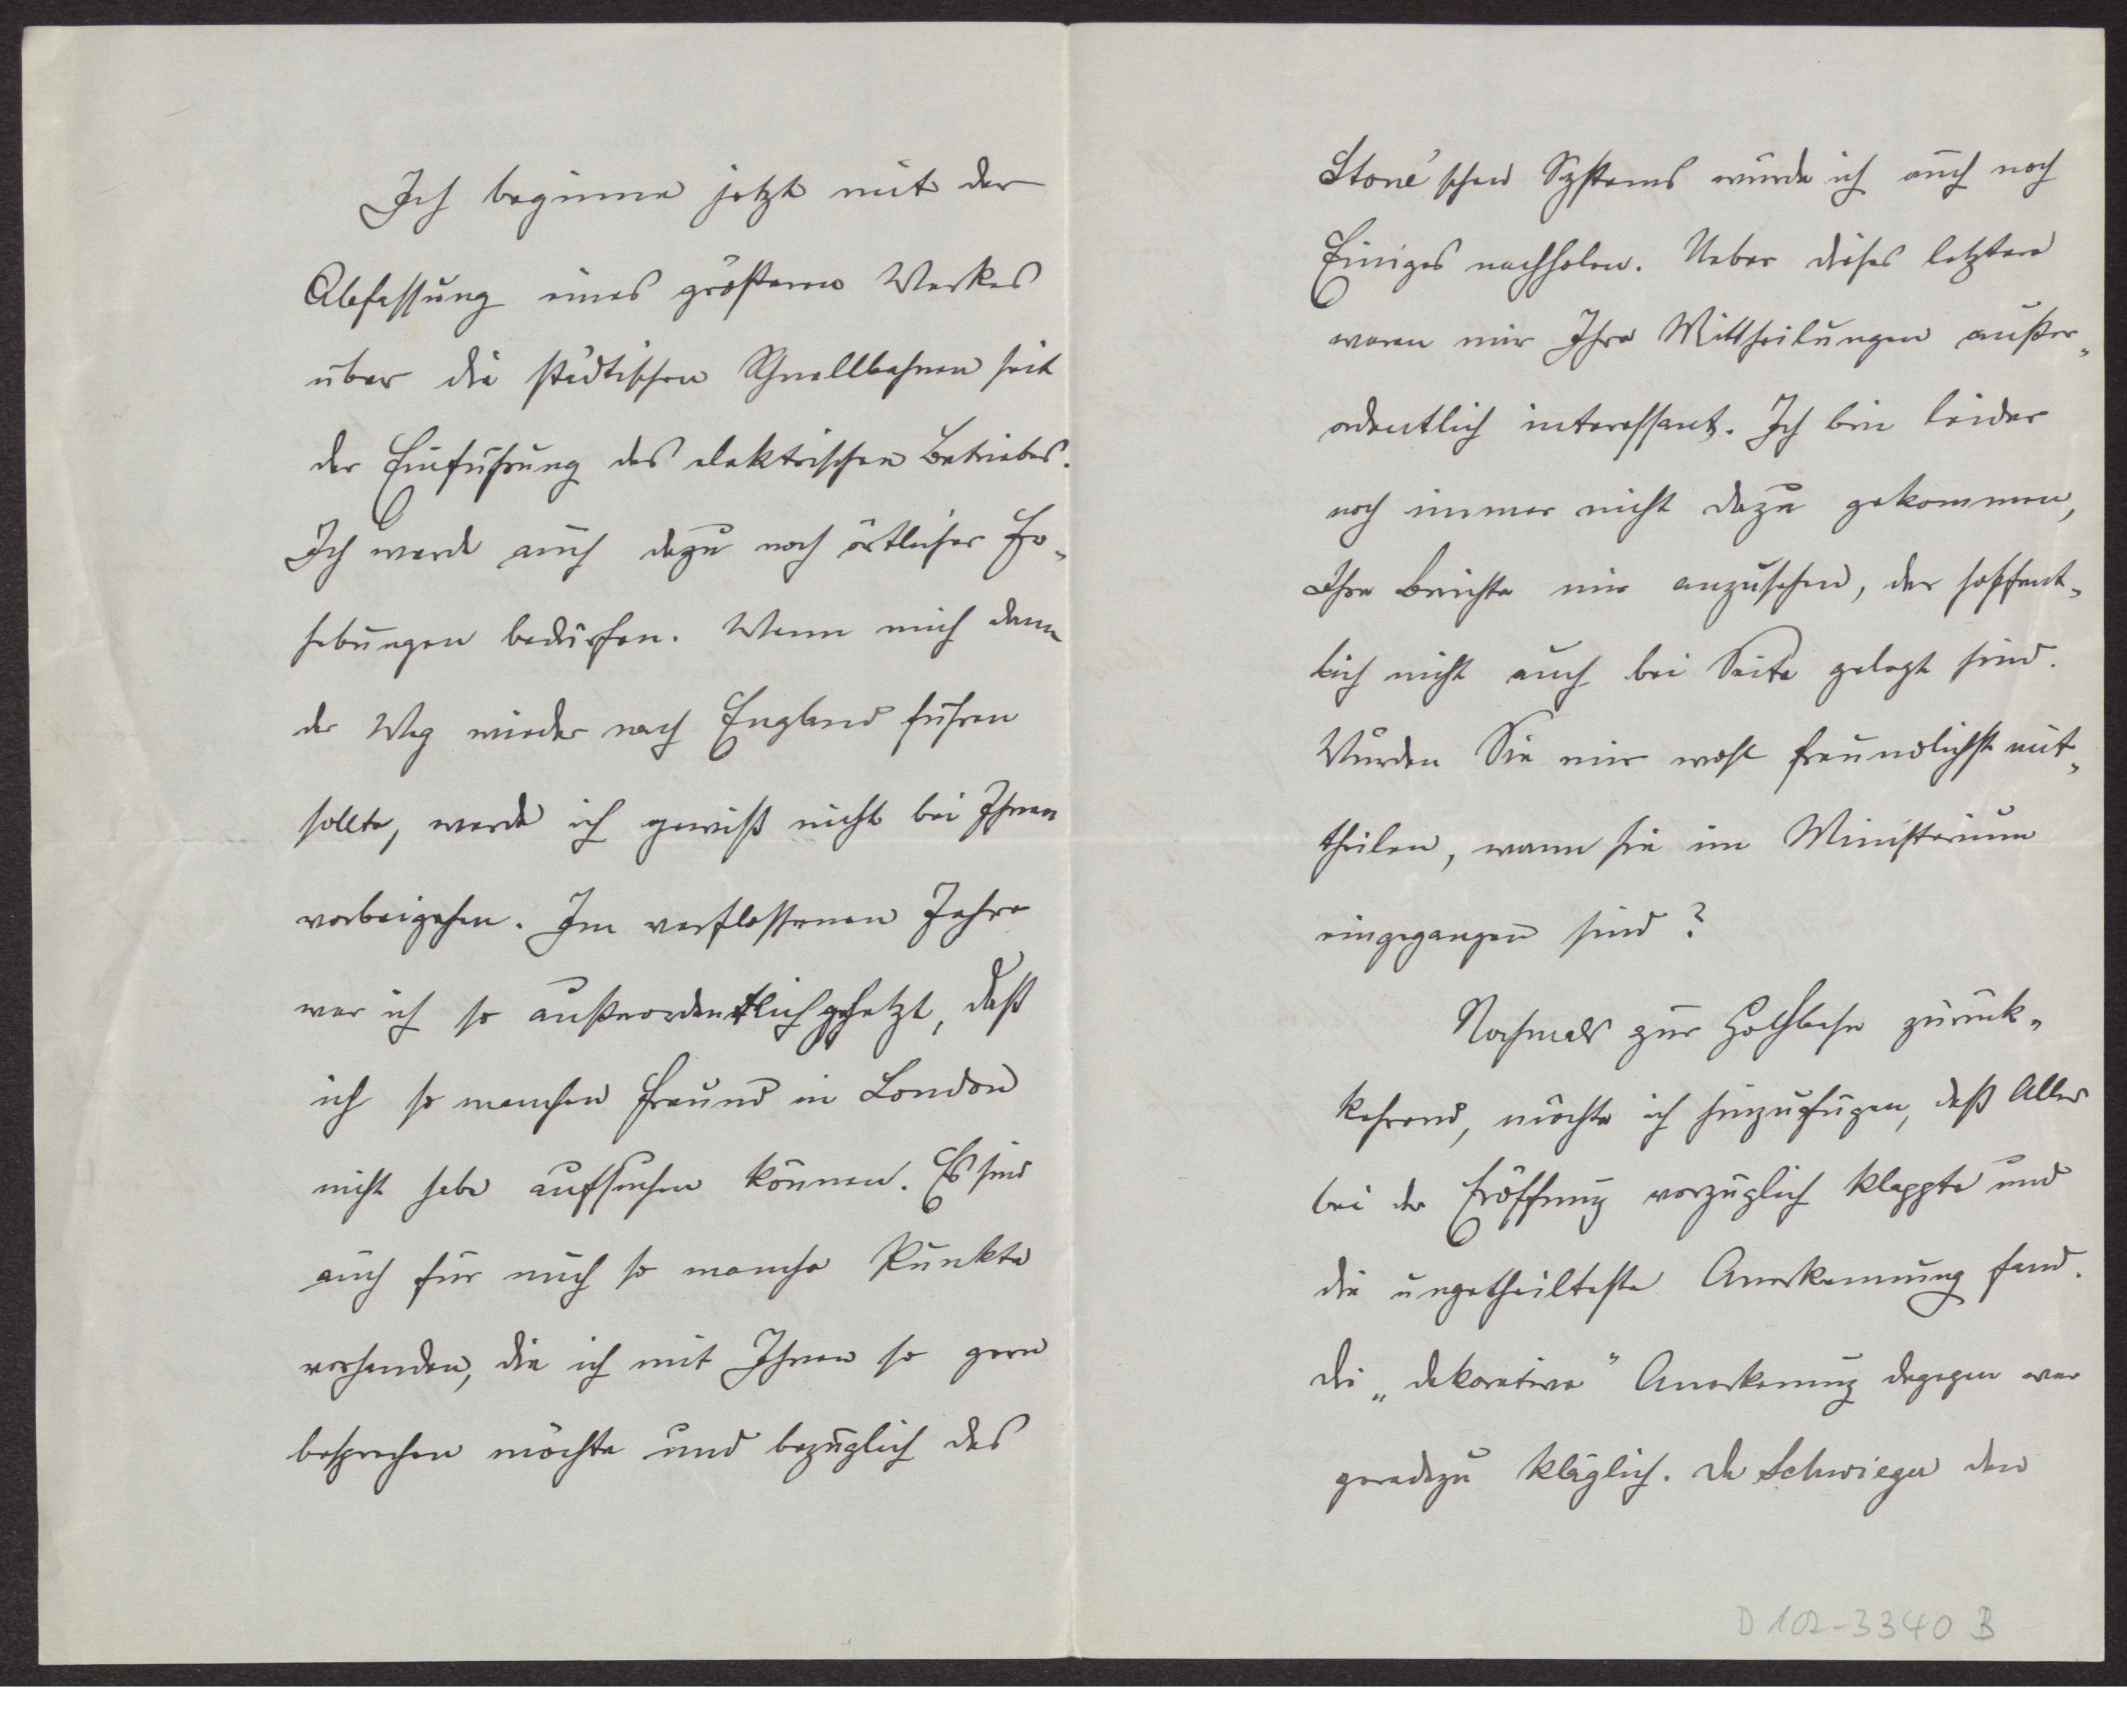 Ich beginne jetzt mit der
Abfassung eines größeren Werkes
über die städtischen Schnellbahnen seit
der Einführung des elektrischen Betriebes.
Ich werde auch dazu noch örtlicher Er-
hebungen bedürfen. Wenn mich dann
der Weg wieder nach England führen
sollte, werde ich gewiß nicht bei Ihnen
vorbeigehen. Im verflossenen Jahre
war ich so außerordentlich gehetzt, daß
ich so manchen Freund in London
nicht habe aufsuchen können. Es sind
auch für mich so manche Punkte
vorhanden, die ich mit Ihnen so gern
besprechen möchte und bezüglich des
Stone'schen Systems würde ich auch noch
Einiges nachholen. Ueber dieses letztere
waren mir Ihre Mittheilungen außer-
ordentlich interessant. Ich bin leider
noch immer nicht dazu gekommen,
Ihre Berichte mir anzusehen, der hoffent-
lich nicht auch bei Seite gelegt sind.
Würden Sie mir wohl freundlichst mit-
theilen, wann sie im Ministerium
eingegangen sind?
Nochmals zur Hochbahn zurück-
kehrend, möchte ich hinzufügen, daß Alles
bei der Eröffnung vorzüglich klappte und
die ungetheilteste Anerkennung fand.
Die „dekorative" Anerkennung dagegen war
geradezu kläglich. Da Schwieger den
D 102-3340 B